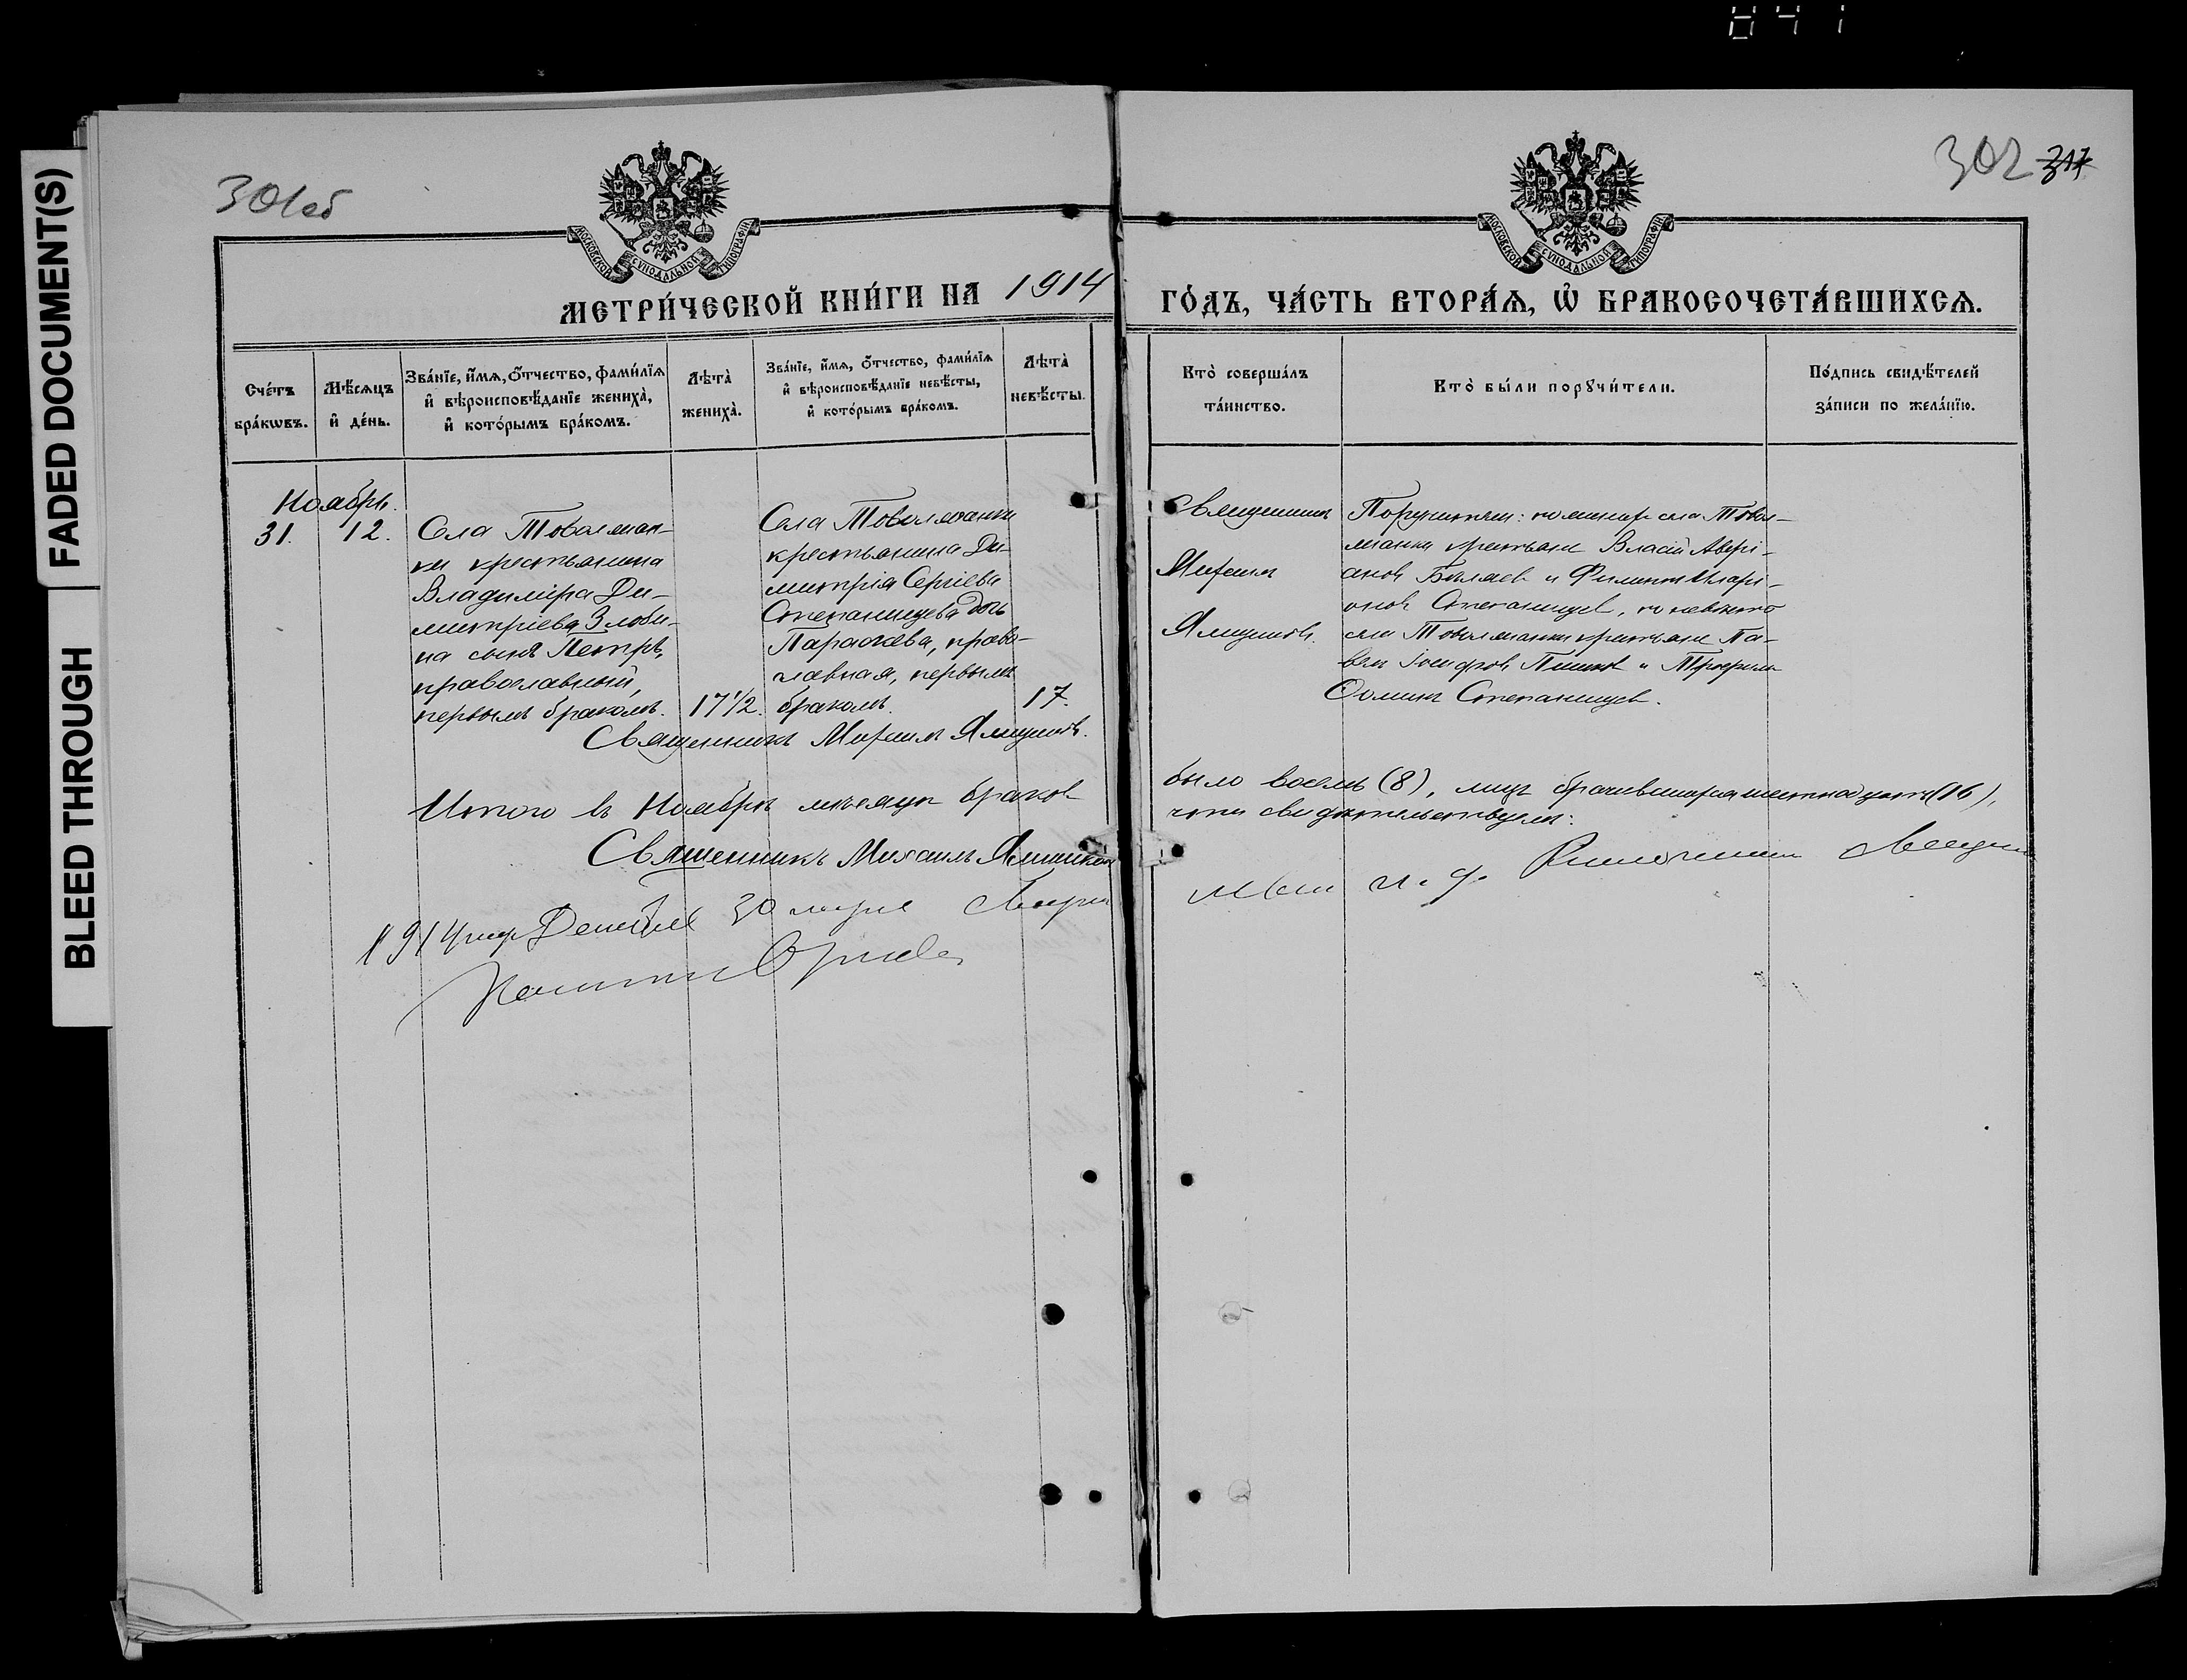 841
FADED DOCUMENT(S)
BLEED THROUGH
301об
302 317
МОСКОВСКОЙ СѴНОДАЛЬНОЙ ТИПОГРАФІИ
МОСКОВСКОЙ СѴНОДАЛЬНОЙ ТИПОГРАФІИ
МЕТРИ́ЧЕСКОЙ КНИ́ГИ НА 1914
ГО́ДЪ, ЧА́СТЬ ВТОРА́Ѧ, Ѽ БРАКОСОЧЕТА́ВШИХСѦ.
Сче́тъ
бра́кѡвъ.
Мѣ́сѧцъ
и҆ де́нь.
Зва́нїе, и҆́мѧ, ѻ҆́тчество, фами́лїѧ
и҆ вѣроисповѣ́данїе жениха̀,
и҆ кото́рымъ бра́комъ.
Лѣта̀
жениха̀.
Зва́нїе, и҆́мѧ, ѻ҆́тчество, фами́лїѧ
и҆ вѣроисповѣ́данїе невѣ́сты,
и҆ кото́рымъ бра́комъ.
Лѣта̀
невѣ́сты.
Кто̀ соверша́лъ
та́инство.
Кто̀ бы́ли порꙋчи́тели.
По́дпись свидѣ́телей
за́писи по жела́нїю.
Ноябрь.
31.
12.
Села Товолжан-
ки крестьянина
Владиміра Ди-
митріева Злоби-
на сынъ Петръ,
православный,
первымъ бракомъ.
17 1/2.
Села Товолжанки
крестьянина Ди-
митрія Сергіева
Степанищева дочь
Параскева, право-
славная, первымъ
бракомъ.
17.
Священникъ Михаилъ
Священникъ
Михаилъ
Поручители: по женихѣ села Товол-
жанки крестьяне Власій Авері-
ановъ Бѣляевъ и Филиппъ Иларі-
оновъ Степанищев, по невѣстѣ
села Товолжанки крестьяне Па-
велъ Іосифовъ и Трофимъ
Ѳоминъ Степанищев.
Итого въ Ноябрѣ мѣсяцѣ браковъ
было восемь (8), лицъ брачившихся шестнадцать (16),
что и свидѣтельствуемъ:
Священникъ Михаилъ
1914 года Декабря 30 дня